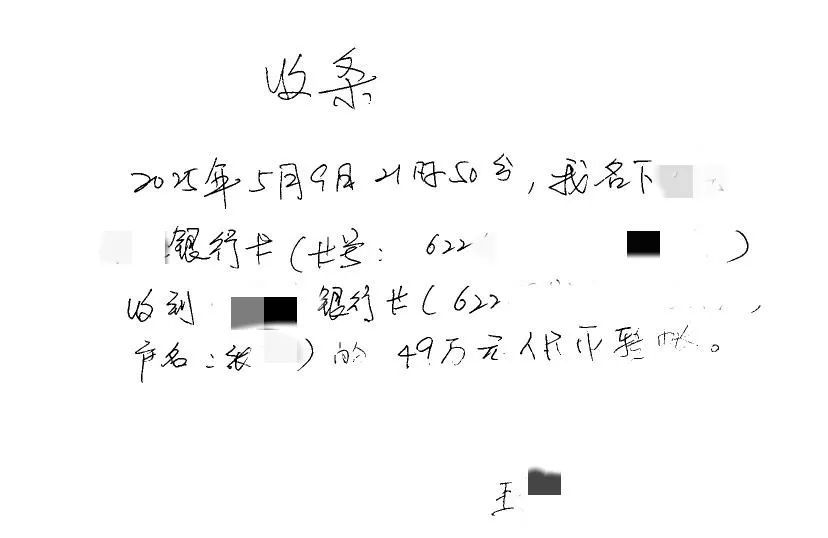 收条
2025年5月9日21时50分，我名下
银行卡(卡号: 622 )
收到 银行卡(622 ,
户名:张 )的49万元人民币转账。
王